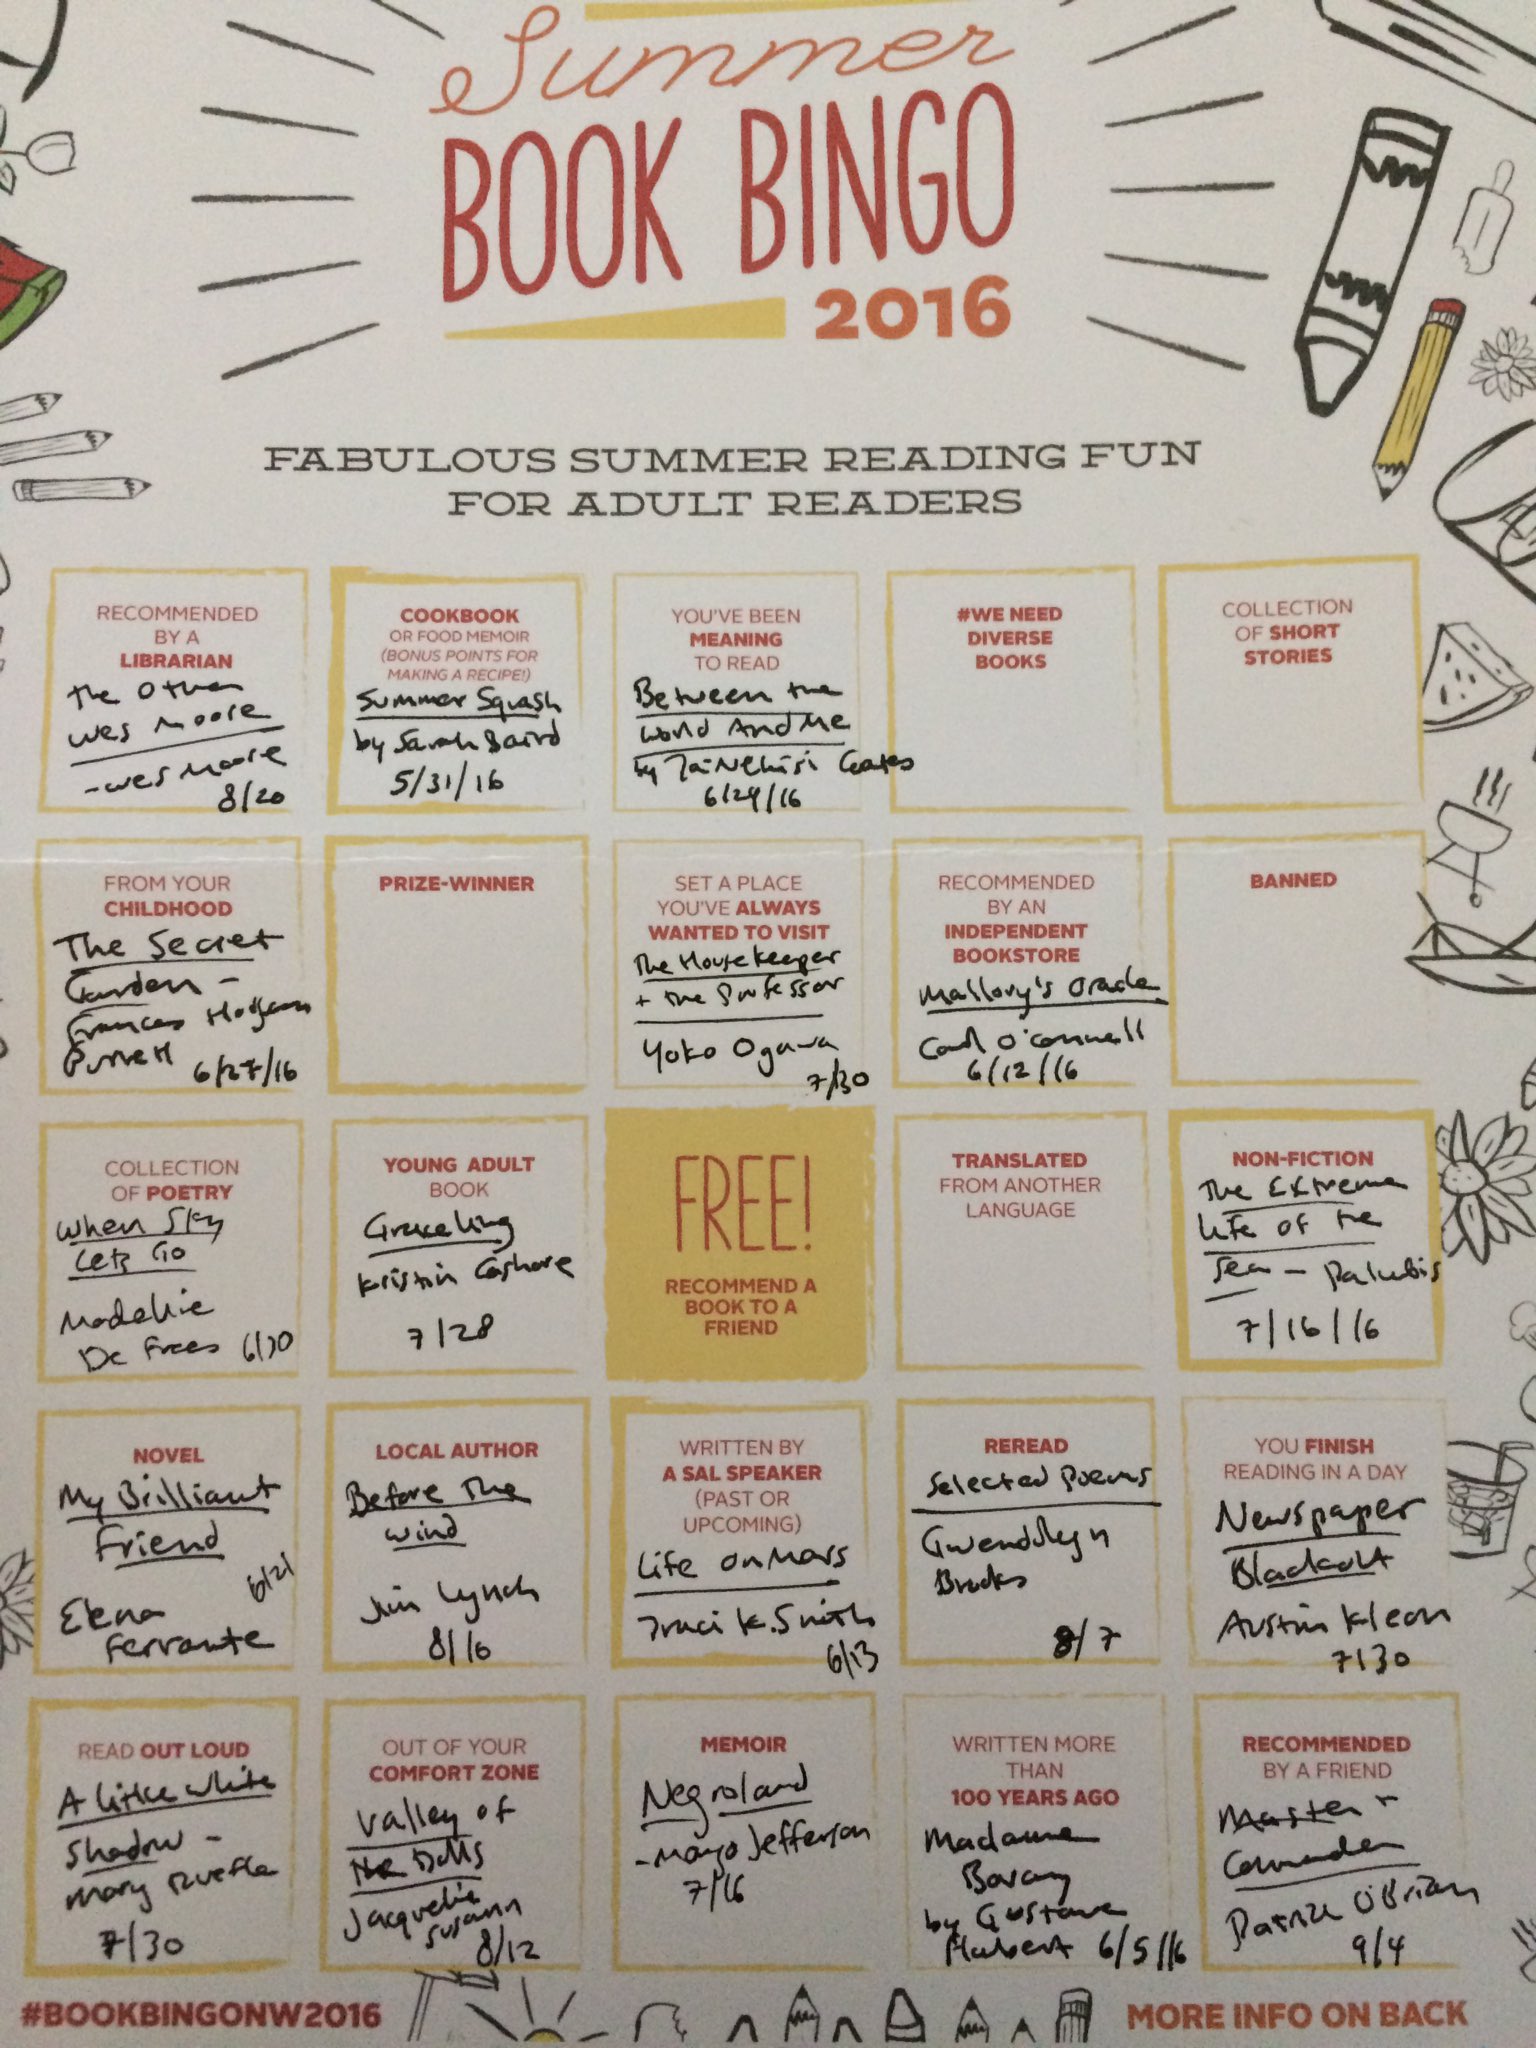 Summer
BOOK BINGO
2016
FABULOUS SUMMER READING FUN
FOR ADULT READERS
RECOMMENDED
BY A
LIBRARIAN
The Other
Wes Moore
- Wes Moore
8/20
COOKBOOK
OR FOOD MEMOIR
(BONUS POINTS FOR
MAKING A RECIPE!)
Summer Squash
by Sarah Baird
5/31/16
YOU'VE BEEN
MEANING
TO READ
Between the
World And Me
by Ta-Nehisi Coates
6/29/16
#WE NEED
DIVERSE
BOOKS
COLLECTION
OF SHORT
STORIES
FROM YOUR
CHILDHOOD
The Secret
Garden -
Frances Hodgson
Burnett 6/27/16
PRIZE-WINNER
SET A PLACE
YOU'VE ALWAYS
WANTED TO VISIT
The Housekeeper
+ the Professor
Yoko Ogawa
7/30
RECOMMENDED
BY AN
INDEPENDENT
BOOKSTORE
Mallory's Oracle
Carol O'Connell
6/12/16
BANNED
COLLECTION
OF POETRY
When Sky
Lets Go
Madeline
De Frees
YOUNG ADULT
BOOK
Graceling
Kristin Cashore
7/28
FREE!
RECOMMEND A
BOOK TO A
FRIEND
TRANSLATED
FROM ANOTHER
LANGUAGE
NON-FICTION
The Extreme
Life of the
Sea - Palumbi
7/16/16
NOVEL
My Brilliant
Friend
6/21
Elena
Ferrante
LOCAL AUTHOR
Before The
Wind
Jim Lynch
8/16
WRITTEN BY
A SAL SPEAKER
(PAST OR
UPCOMING)
Life on Mars
Traci K. Smith
6/13
REREAD
Selected Poems
Gwendolyn
Brooks
8/7
YOU FINISH
READING IN A DAY
Newspaper
Blackout
Austin Kleon
7/30
READ OUT LOUD
A little white
Shadow -
Mary Ruefle
7/30
OUT OF YOUR
COMFORT ZONE
Valley of
the Dolls
Jacqueline
Susann
8/12
MEMOIR
Negroland
- Margo Jefferson
7/16
WRITTEN MORE
THAN
100 YEARS AGO
Madame
Bovary
by Gustave
Flaubert 6/5/16
RECOMMENDED
BY A FRIEND
Master +
Commander
Patrick O'Brian
9/4
#BOOKBINGONW2016
MORE INFO ON BACK